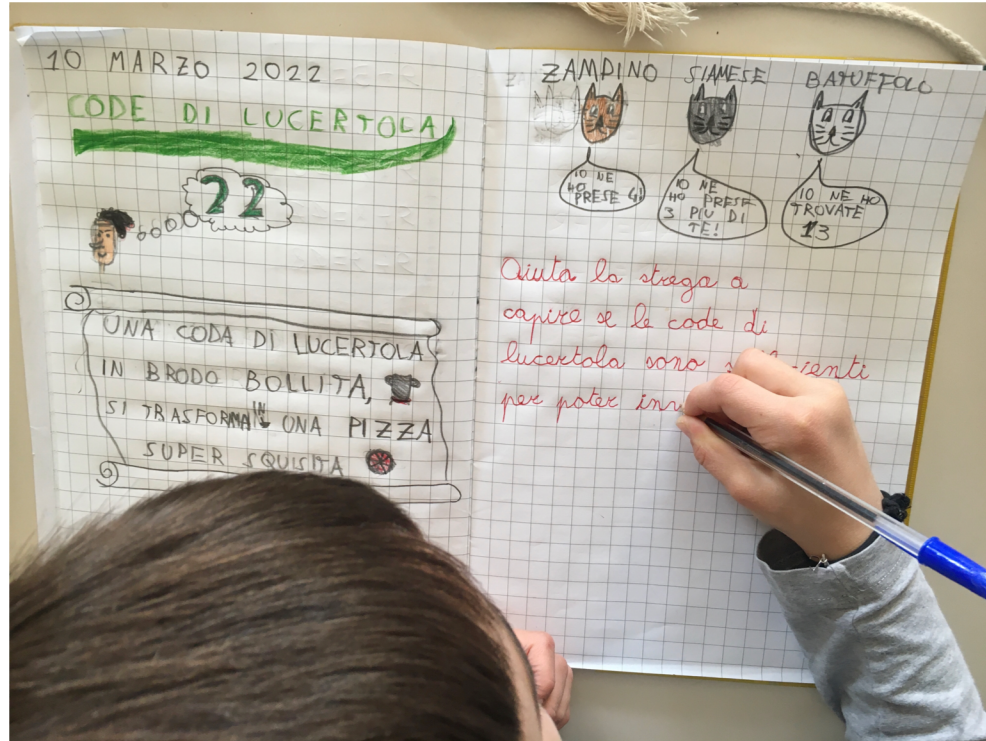 10 MARZO 2022
CODE DI LUCERTOLA
22
UNA CODA DI LUCERTOLA
IN BRODO BOLLITA,
SI TRASFORMA IN UNA PIZZA
SUPER SQUISITA
ZAMPINO SIAMESE BATUFFOLO
IO NE
HO
PRESE 4!
IO NE
HO PRESE
3 PIÙ DI
TE!
IO NE HO
TROVATE
13
Aiuta la strega a
capire se le code di
lucertola sono
per poter